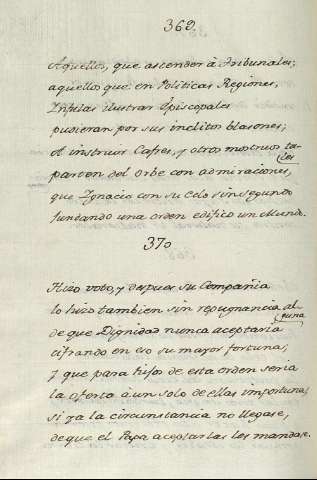 369.
Aquellos, que ascender à Tribunales;
aquellos que en Politicas Regiones,
Infulas ilustrar Episcopales
pudieran por sus inclitos blasones;
A instruir Cafres, y otros mostruos tales
parten del Orbe con admiraciones,
que Ignacio con su celo sin segundo
fundando una orden edifico un Mundo.
370
Hizo voto, y despues su Compañia
lo hizo tambien sin repugnancia alguna
de que Dignidad nunca aceptaria
cifrando en eso su mayor fortuna;
y que para hijos de esta orden seria
la oferta à un solo de ellas importuna;
si ya la circunstancia no llegase,
de que el Papa aceptarlas les mandase.